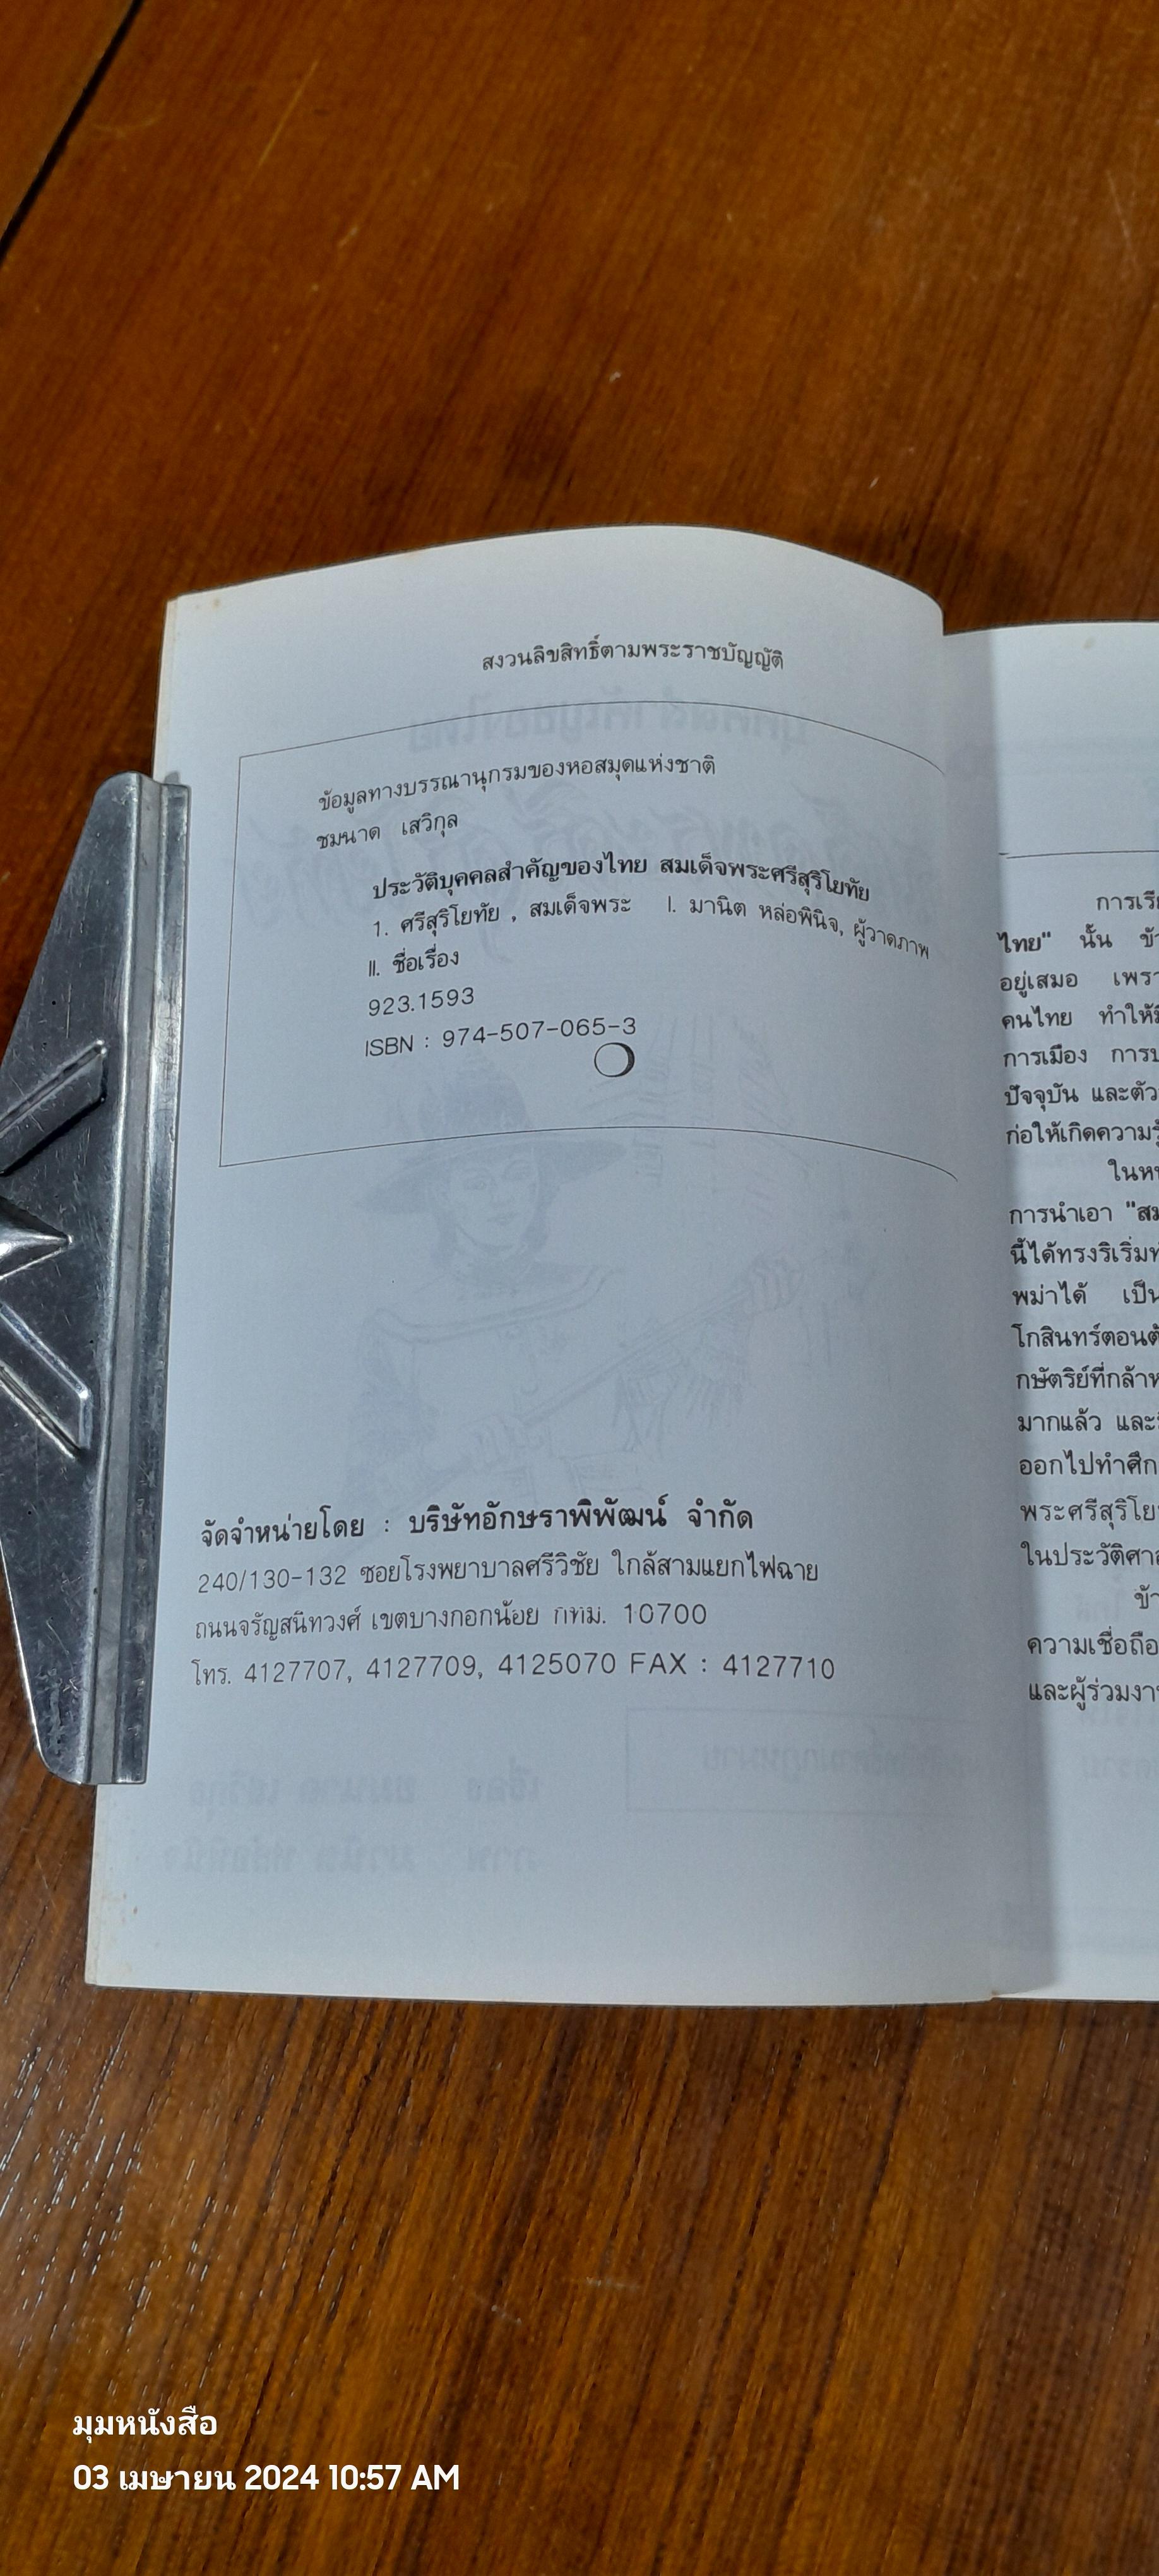 สงวนลิขสิทธิ์ตามพระราชบัญญัติ
ข้อมูลทางบรรณานุกรมของหอสมุดแห่งชาติ
ชมนาด เสวิกุล
ประวัติบุคคลสำคัญของไทย สมเด็จพระศรีสุริโยทัย
1. ศรีสุริโยทัย , สมเด็จพระ I. มานิต หล่อพินิจ, ผู้วาดภาพ
II. ชื่อเรื่อง
923.1593
ISBN : 974-507-065-3
จัดจำหน่ายโดย : บริษัทอักษราพิพัฒน์ จำกัด
240/130-132 ซอยโรงพยาบาลศรีวิชัย ใกล้สามแยกไฟฉาย
ถนนจรัญสนิทวงศ์ เขตบางกอกน้อย กทม. 10700
โทร. 4127707, 4127709, 4125070 FAX : 4127710
ไทย" นั้น
อยู่เสมอ
คนไทย
การเมือง
ปัจจุบัน
การนำเอา
นี้ได้ทรงริเริ่ม
พม่าได้
โกสินทร์ตอน
มากแล้ว
ออกไปทำศึก
ความเชื่อถือ
มุมหนังสือ
03 เมษายน 2024 10:57 AM